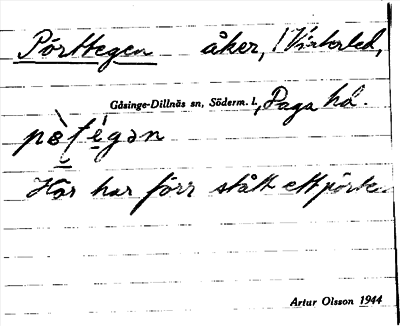 Pörttegen åker,
Gåsinge-Dillnäs sn, Söderm. l., Daga hd.
Här har förr stått ett pörte.
Artur Olsson 1944